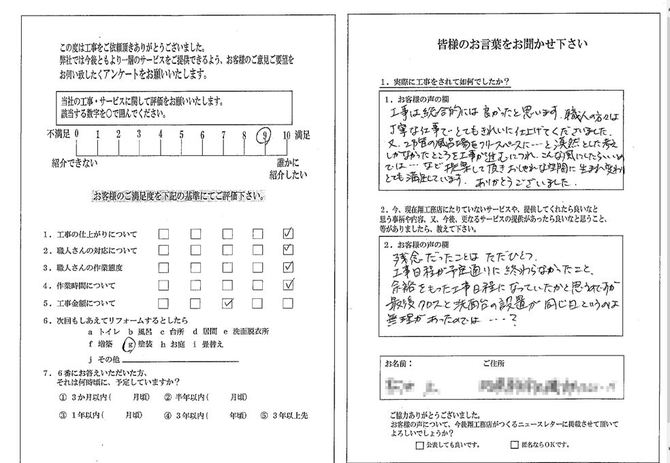 この度は工事をご依頼頂きありがとうございました。
弊社では今後ともより一層のサービスをご提供できるよう、お客様のご意見ご要望を
お伺い致したくアンケートをお願いいたします。
当社の工事・サービスに関して評価をお願いいたします。
該当する数字を○で囲んでください。
不満足 0 1 2 3 4 5 6 7 8 9 10 満足
紹介できない 誰かに
紹介したい
お客様のご満足度を下記の基準にてご評価下さい。
1．工事の仕上がりについて
2．職人さんの対応について
3．職人さんの作業態度
4．作業時間について
5．工事金額について
6．次回もしあえてリフォームするとしたら
a トイレ b 風呂 c 台所 d 居間 e 洗面脱衣所
f 増築 g 塗装 h お庭 i 畳替え
j その他
7．6番にお答えいただいた方、
それは何時頃に、予定していますか？
① 3か月以内（ 月頃） ② 半年以内（ 月頃）
③ 1年以内（ 月頃） ④ 3年以内（ 年頃） ⑤ 3年以上先
皆様のお言葉をお聞かせ下さい
1．実際に工事をされて如何でしたか？
1．お客様の声の欄
工事は総合的には良かったと思います。職人の方々は
丁寧な仕事でとてもきれいに仕上げてくださいました。
又、フリースペースに…と漠然とした考え
しかなかったところを工事が進むにつれ、こんな風にしたらいいの
では…など提案して頂きおしゃれな空間に生まれ変わり
とても満足しています。ありがとうございました。
2．今、現在翔工務店にたりていないサービスや、提供してくれたら良いなと
思う事柄や内容、又、今後、更なるサービスの提供があったら良いなと思うこと、
等がありましたら、教えて下さい。
2．お客様の声の欄
残念だったことはただひとつ。
工事日程が予定通りに終わらなかったこと。
余裕をもった工事日程になっていたかと思うのですが
最後クロスと洗面台の設置が同じ日というのは
無理があったのでは…？
お名前： ご住所
ご協力ありがとうございました。
お客様の声について、今後翔工務店がつくるニュースレターに掲載させて頂いて
よろしいでしょうか？
公表しても良いです。 匿名ならOKです。